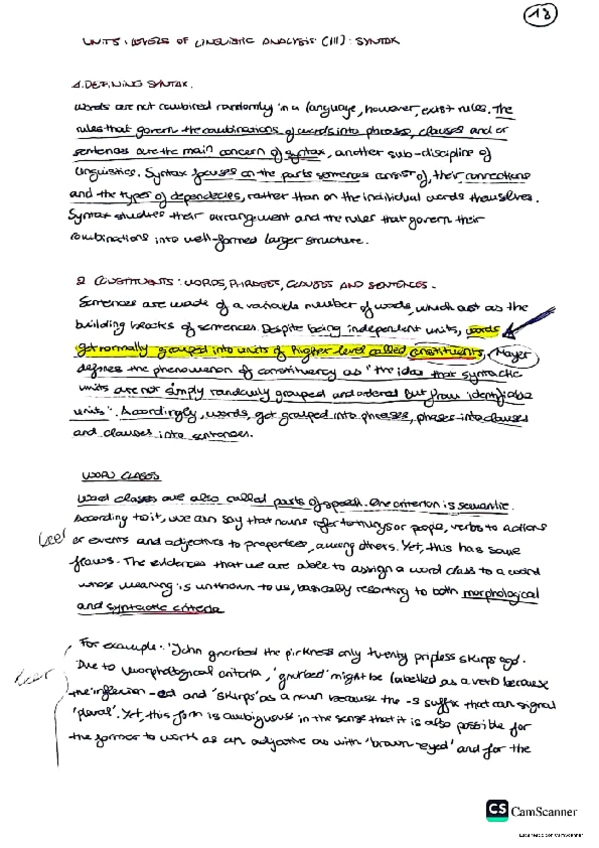 13
UNIT 5: LEVELS OF LINGUISTIC ANALYSIS (III): SYNTAX
1. DEFINING SYNTAX.
Words are not combined randomly in a language, however, exist rules. The
rules that govern the combinations of words into phrases, clauses and or
sentences are the main concern of syntax, another sub-discipline of
linguistics. Syntax focuses on the parts sentences consist of, their connections
and the types of dependencies, rather than on the individual words themselves.
Syntax studies their arrangement and the rules that govern their
combinations into well-formed larger structure.
2 CONSTITUENTS: WORDS, PHRASES, CLAUSES AND SENTENCES.
Sentences are made of a variable number of words, which act as the
building blocks of sentences. Despite being independent units, words
get normally grouped into units of higher level called constituents, Mayer
defines the phenomenon of constituency as "the idea that syntactic
units are not simply randomly grouped and ordered but from identifiable
units". Accordingly, words, get grouped into phrases, phases into clauses
and clauses into sentences.
WORD CLASSES
Word classes are also called parts of speech. One criterion is semantic.
According to it, we can say that nouns refer to things or people, verbs to actions
Leer
or events and adjectives to properties, among others. Yet, this has some
flaws. The evidences that we are able to assign a word class to a word
whose meaning is unknown to us, basically resorting to both morphological
and syntactic criteria
For example: 'John gnorbed the pirkness only twenty pripless skirps ago.
Leer
Due to morphological criteria, might be labelled as a verb because
the inflexion -ed and 'skirps' as a noun because the -s suffix that can signal
'plural'. Yet, this form is ambiguous in the sense that it is also possible for
the former to work as an adjective as with 'brown-eyed' and for the
CS CamScanner